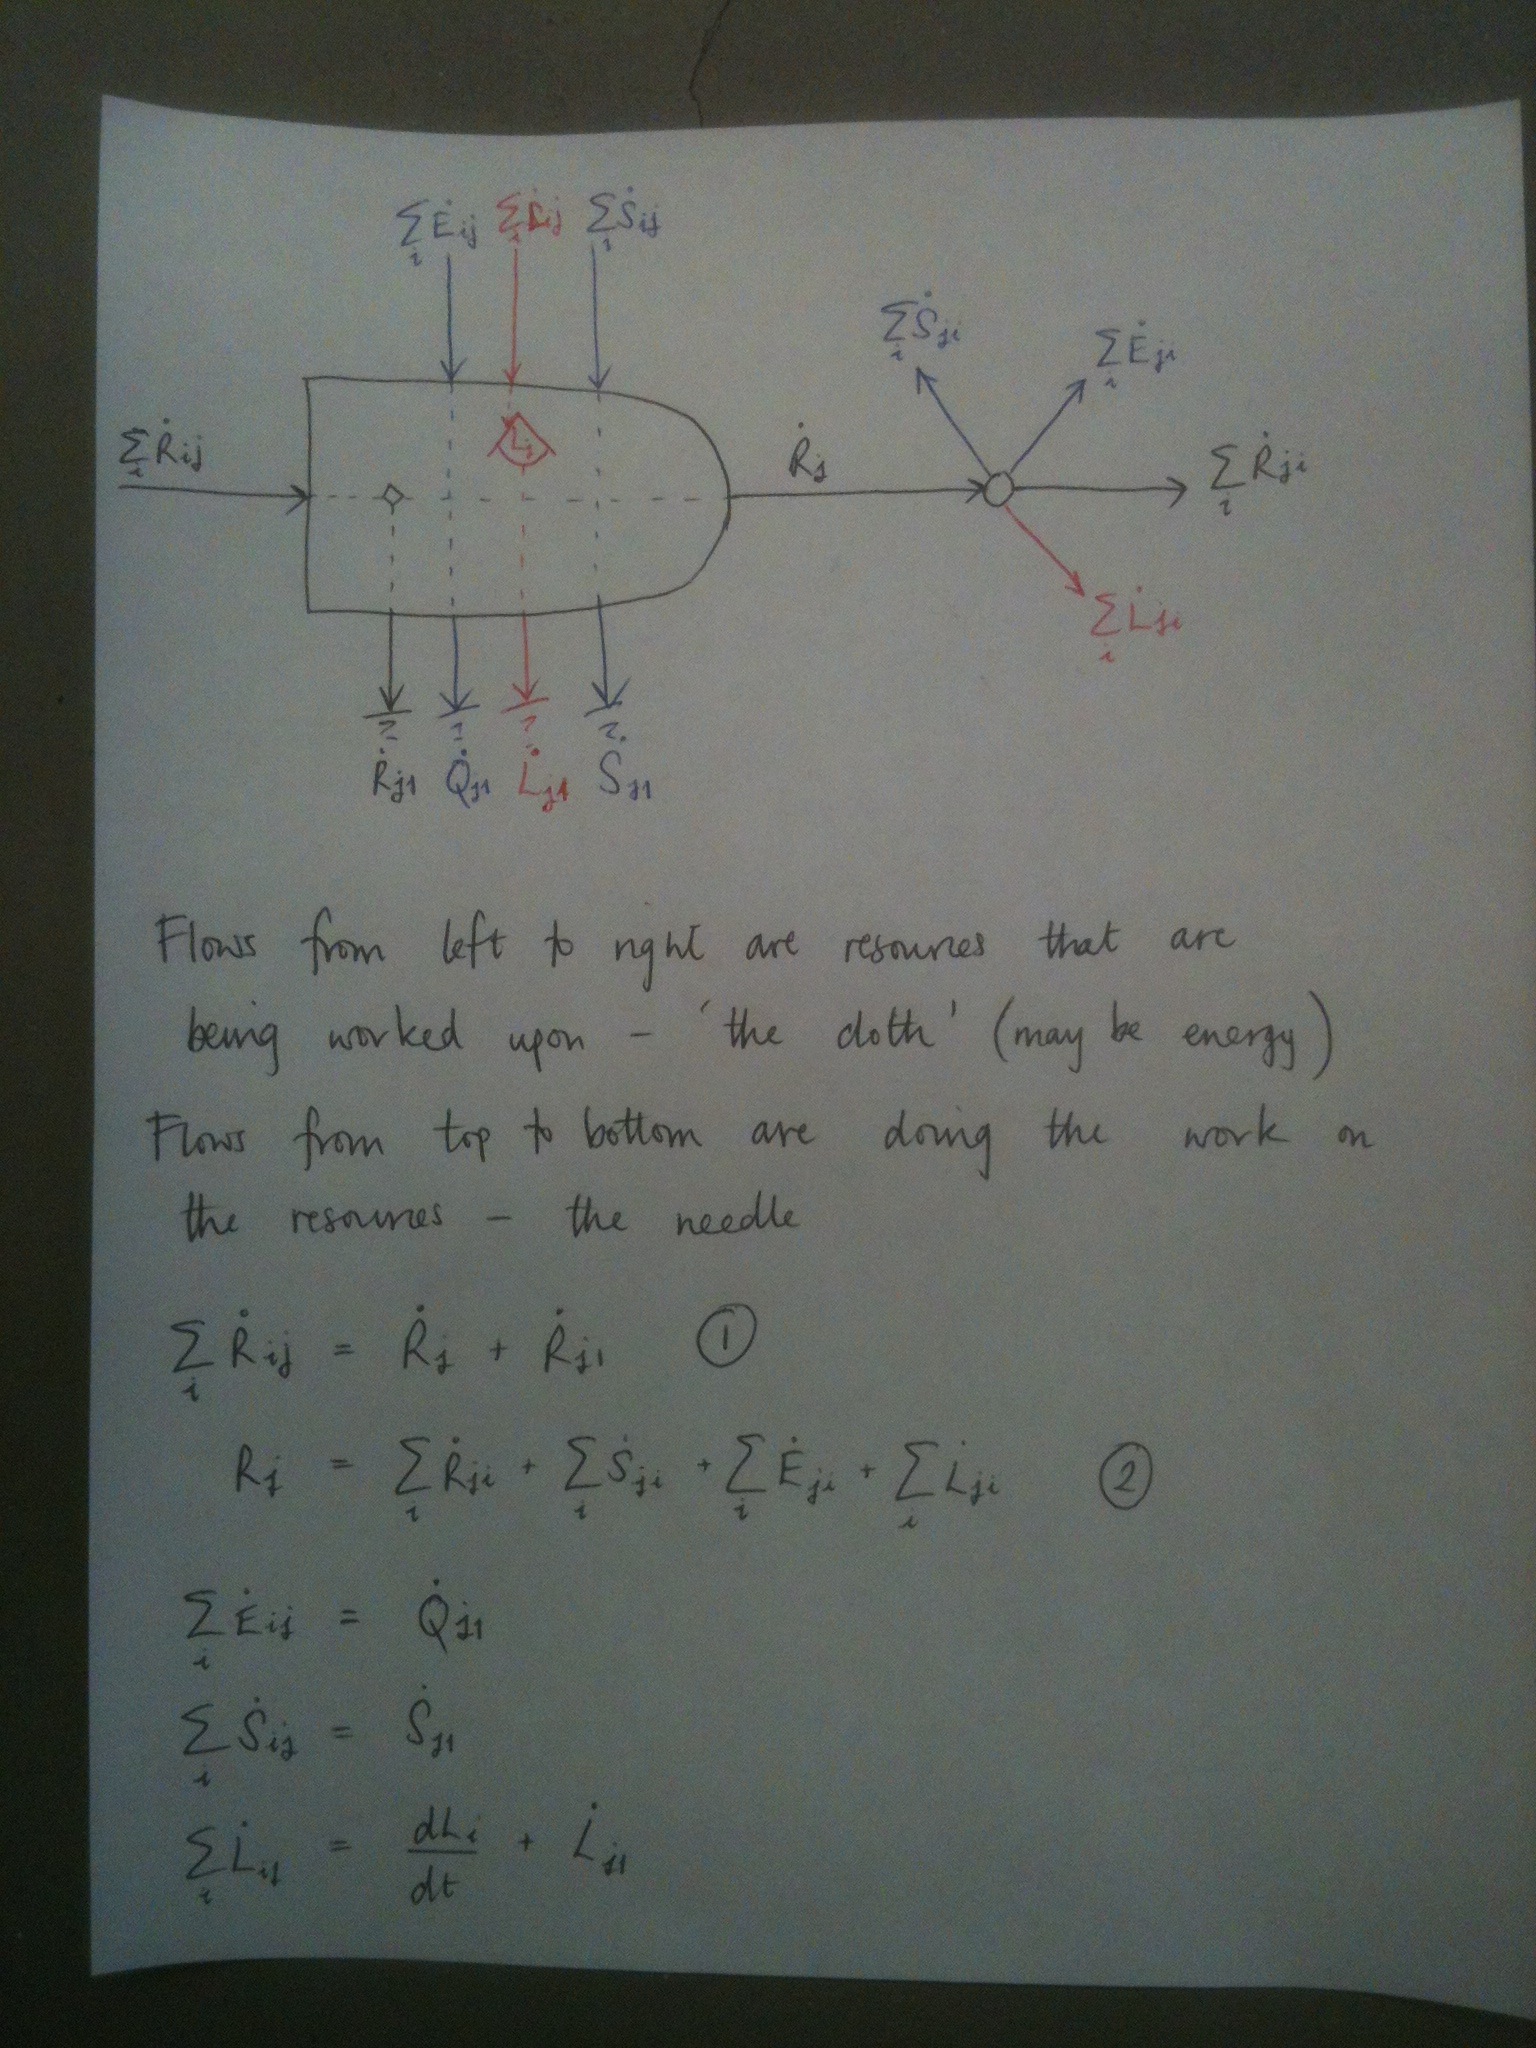 ∑ᵢ Ėij ∑ᵢ L̇ij ∑ᵢ Ṡij
∑ᵢ Ṡji
∑ᵢ Ėji
∑ᵢ Ṙij
Lj
Ṙj
∑ᵢ Ṙji
∑ᵢ L̇ji
Ṙj1 Q̇j1 L̇j1 Ṡj1
Flows from left to right are resources that are
being worked upon – 'the cloth' (may be energy)
Flows from top to bottom are doing the work on
the resources – the needle
∑ᵢ Ṙij = Ṙj + Ṙj1 ①
Rj = ∑ᵢ Ṙji + ∑ᵢ Ṡji + ∑ᵢ Ėji + ∑ᵢ L̇ji ②
∑ᵢ Ėij = Q̇j1
∑ᵢ Ṡij = Ṡj1
∑ᵢ L̇ij = dLi/dt + L̇j1